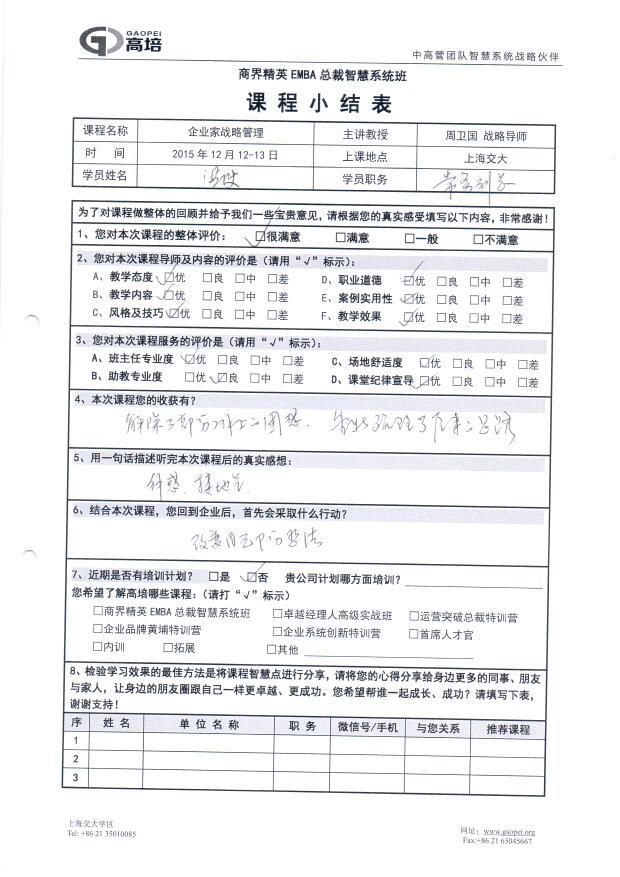 GAOPEI
高培
中高管团队智慧系统战略伙伴
商界精英 EMBA 总裁智慧系统班
课程小结表
课程名称 企业家战略管理 主讲教授 周卫国 战略导师
时 间 2015 年 12 月 12-13 日 上课地点 上海交大
学员姓名 学员职务
为了对课程做整体的回顾并给予我们一些宝贵意见，请根据您的真实感受填写以下内容，非常感谢！
1、您对本次课程的整体评价： ☑很满意 □满意 □一般 □不满意
2、您对本次课程导师及内容的评价是（请用“√”标示）：
A、教学态度 ☑优 □良 □中 □差 D、职业道德 ☑优 □良 □中 □差
B、教学内容 ☑优 □良 □中 □差 E、案例实用性 ☑优 □良 □中 □差
C、风格及技巧 ☑优 □良 □中 □差 F、教学效果 ☑优 □良 □中 □差
3、您对本次课程服务的评价是（请用“√”标示）：
A、班主任专业度 ☑优 □良 □中 □差 C、场地舒适度 □优 ☑良 □中 □差
B、助教专业度 □优 ☑良 □中 □差 D、课堂纪律宣导 ☑优 □良 □中 □差
4、本次课程您的收获有？
解除了部分
5、用一句话描述听完本次课程后的真实感想：
接地气
6、结合本次课程，您回到企业后，首先会采取什么行动？
改变自己
7、近期是否有培训计划？ □是 ☑否 贵公司计划哪方面培训？
您希望了解高培哪些课程：（请打“√”标示）
□商界精英 EMBA 总裁智慧系统班 □卓越经理人高级实战班 □运营突破总裁特训营
□企业品牌黄埔特训营 □企业系统创新特训营 □首席人才官
□内训 □拓展 □其他
8、检验学习效果的最佳方法是将课程智慧点进行分享，请将您的心得分享给身边更多的同事、朋友
与家人，让身边的朋友圈跟自己一样更卓越、更成功。您希望帮谁一起成长、成功？请填写下表，
谢谢支持！
序 姓 名 单 位 名 称 职 务 微信号/手机 与您关系 推荐课程
1
2
3
上海交大学区
Tel: +86 21 35010085
网址：www.gaopei.org
Fax:+86 21 65045667